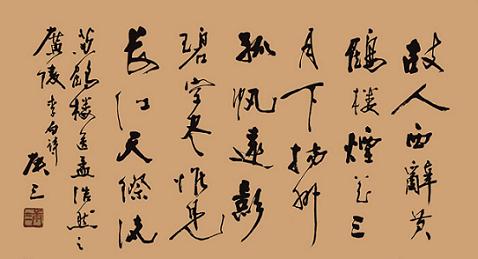 故人西辭黄
鶴樓煙花三
月下揚州
孤帆遠影
碧空尽惟見
長江天際流
黄鶴樓送孟浩然之
廣陵李白詩